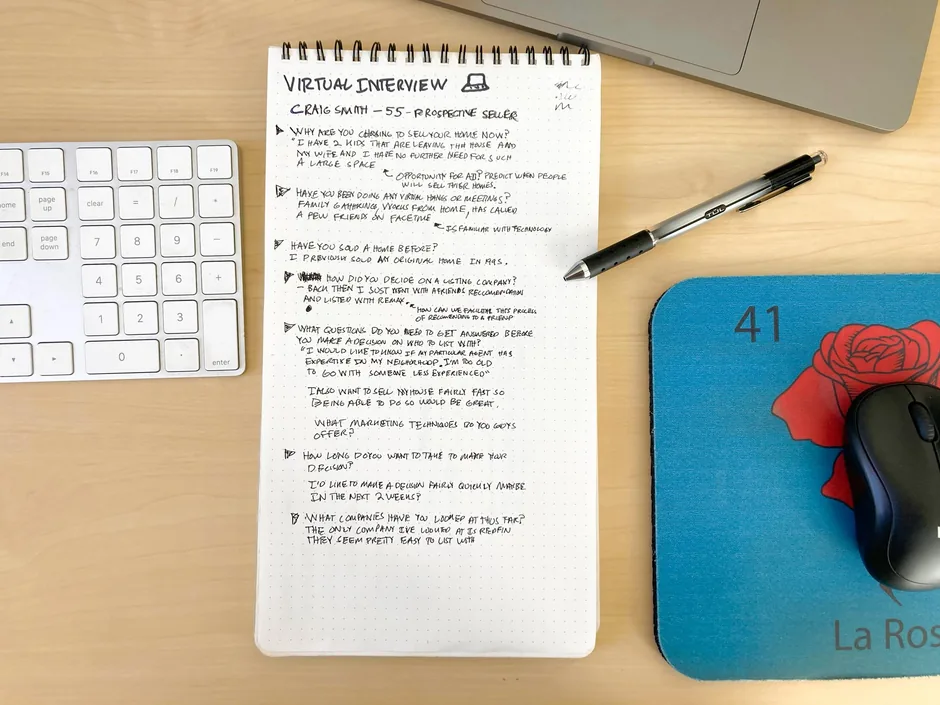 VIRTUAL INTERVIEW
CRAIG SMITH - 55 - PROSPECTIVE SELLER
WHY ARE YOU CHOOSING TO SELL YOUR HOME NOW?
"I HAVE 2 KIDS THAT ARE LEAVING THE HOUSE AND
MY WIFE AND I HAVE NO FURTHER NEED FOR SUCH
A LARGE SPACE
OPPORTUNITY FOR AD? PREDICT WHEN PEOPLE
WILL SELL THEIR HOMES.
HAVE YOU BEEN DOING ANY VIRTUAL HANGS OR MEETINGS?
FAMILY GATHERING, WORKS FROM HOME, HAS CALLED
A FEW FRIENDS ON FACETIME
IS FAMILIAR WITH TECHNOLOGY
HAVE YOU SOLD A HOME BEFORE?
I PREVIOUSLY SOLD MY ORIGINAL HOME IN 1995.
HOW DID YOU DECIDE ON A LISTING COMPANY?
- BACK THEN I JUST WENT WITH A FRIENDS RECOMMENDATION
AND LISTED WITH REMAX.
HOW CAN WE FACILITATE THIS PROCESS
OF RECOMENDING TO A FRIEND
WHAT QUESTIONS DO YOU NEED TO GET ANSWERED BEFORE
YOU MAKE A DECISION ON WHO TO LIST WITH?
"I WOULD LIKE TO KNOW IF MY PARTICULAR AGENT HAS
EXPERTISE IN MY NEIGHBORHOOD. I'M TOO OLD
TO GO WITH SOMEONE LESS EXPERIENCED"
I ALSO WANT TO SELL MY HOUSE FAIRLY FAST SO
BEING ABLE TO DO SO WOULD BE GREAT.
WHAT MARKETING TECHNIQUES DO YOU GUYS
OFFER?
HOW LONG DO YOU WANT TO TAKE TO MAKE YOUR
DECISION?
I'D LIKE TO MAKE A DECISION FAIRLY QUICKLY MAYBE
IN THE NEXT 2 WEEKS?
WHAT COMPANIES HAVE YOU LOOKED AT THUS FAR?
THE ONLY COMPANY I'VE LOOKED AT IS REDFIN
THEY SEEM PRETTY EASY TO LIST WITH
F14 F15 F16 F17 F18 F19
home page up clear = / +
end page down 7 8 9 -
4 5 6 +
1 2 3
0 . enter
TUL
41
La Ros